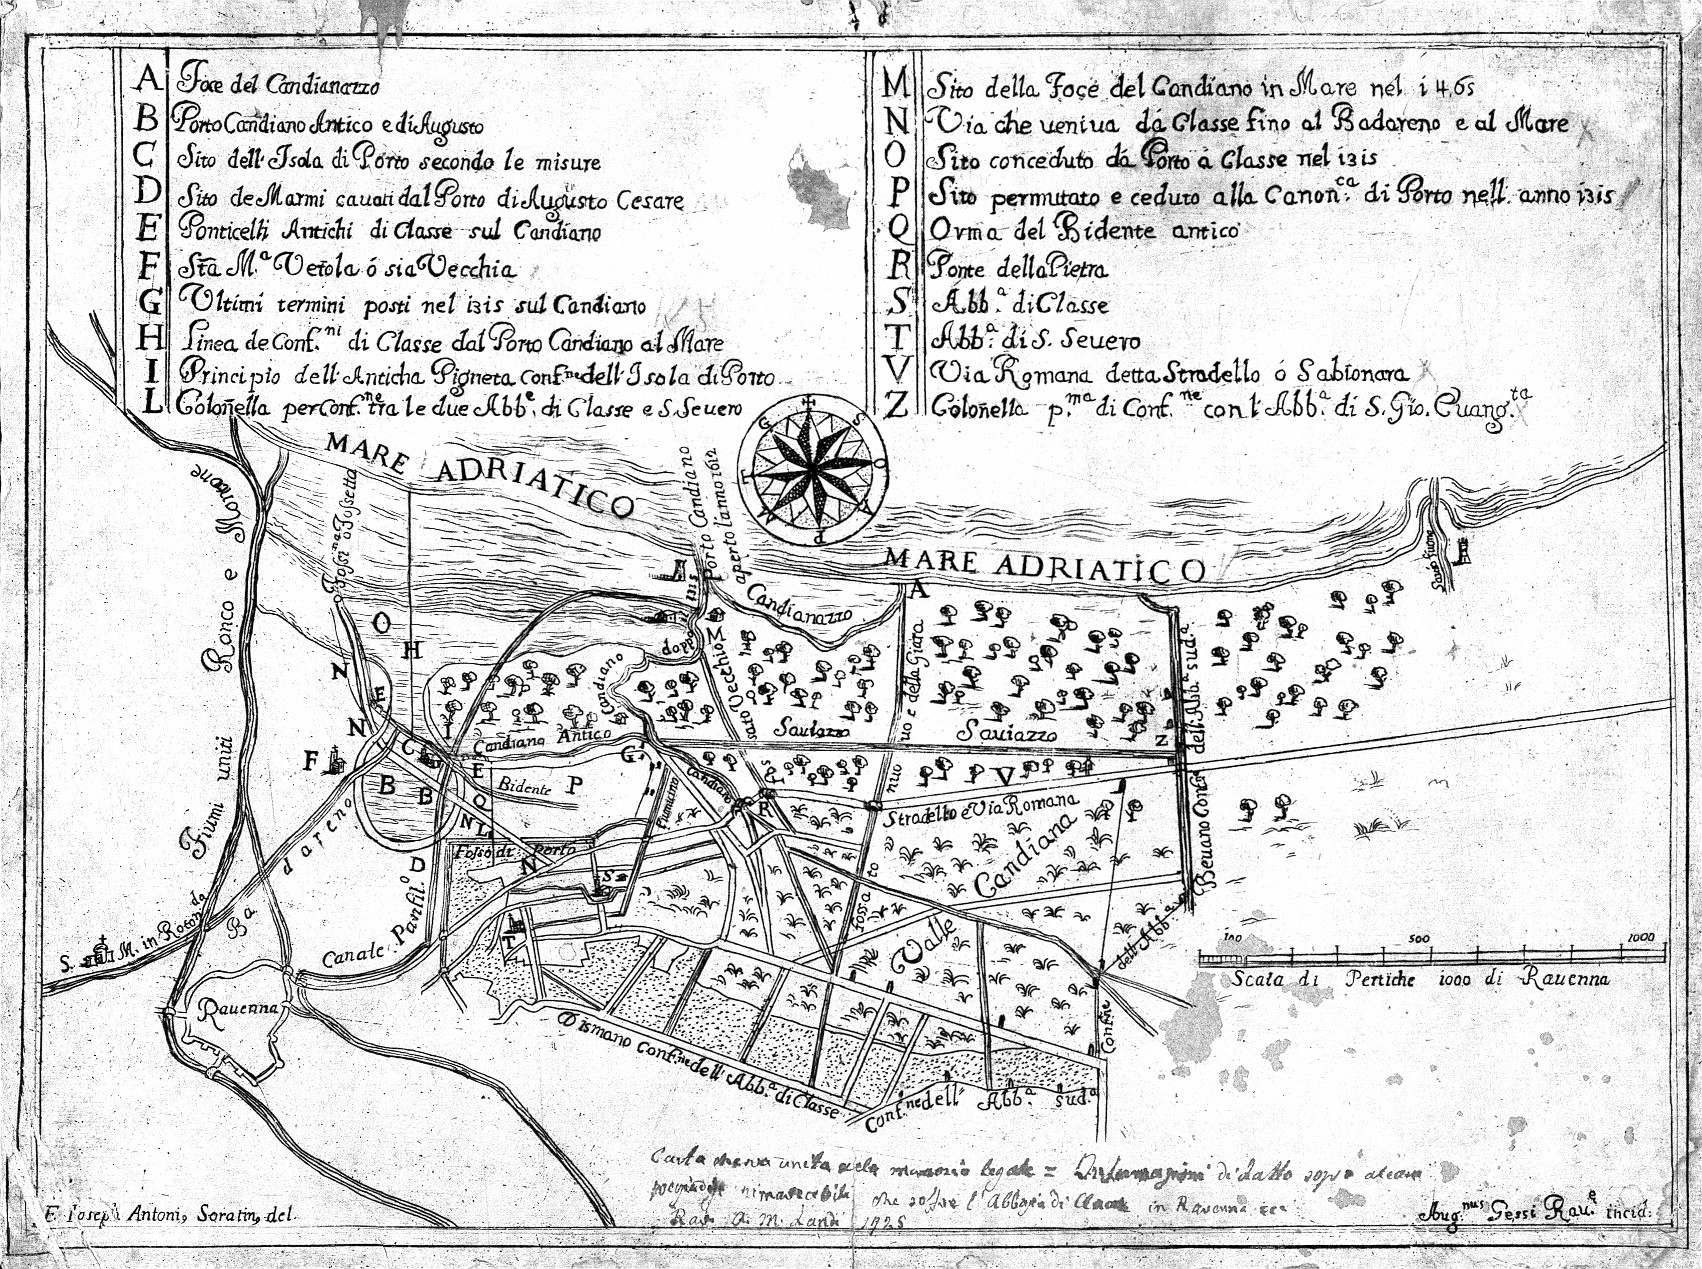 A Foce del Candianazzo
B Porto Candiano Antico e di Augusto
C Sito dell'Isola di Porto secondo le misure
D Sito de Marmi cauati dal Porto di Augusto Cesare
E Ponticelli Antichi di Classe sul Candiano
F Sta. M.a Vetola ó sia Vecchia
G Ultimi termini posti nel i3i5 sul Candiano
H Linea de Conf.ni di Classe dal Porto Candiano al Mare
I Principio dell'Anticha Pigneta conf.ne dell'Isola di Porto
L Coloñella per Conf.ne tra le due Abb.e di Classe e S. Seuero
M Sito della Foce del Candiano in Mare nel i465
N Via che ueniua dá Classe fino al Badareno e al Mare
O Sito conceduto dá Porto á Classe nel i3i5
P Sito permutato e ceduto alla Canon.ca di Porto nell'anno i3i5
Q Orma del Bidente antico
R Ponte della Pietra
S Abb.a di Classe
T Abb.a di S. Seuero
V Via Romana detta Stradello ó Sabionara
Z Coloñella p.ma di Conf.ne con l'Abb.a di S. Gio. Euang.ta
MARE ADRIATICO
G
S
O
A
P
M
T
Porto Candiano
aperto l'anno 1612
MARE ADRIATICO
Fiumi uniti Ronco e Montone
o Fossetta
Candianazzo
A
O
H
N
E
N
F
C
B
B
I
E
Q
N
L
D
N
P
G
M
R
S
T
V
Z
Candiano
doppo
Candiano Antico
Bidente
Sauiazzo
Sauiazzo
Candiano
Fiumicino
nuo e della Giara
Fossato
nuo
Stradello é Via Romana
Valle Candiana
Beuano Conf.
dell'Abb.a sud.a
dell'Abb.a
Confine
Fosso di Porto
Canale Panfil.o
Badareno
S. M. in Rotonda
Ravenna
Dismano Conf.ne dell'Abb.a di Classe
Conf.ne dell' Abb.a sud.a
100 500 1000
Scala di Pertiche 1000 di Ravenna
in Ravenna
1925
F. Ioseph Antoni, Soratin, del.
Aug.nus Gessi Rau.e incid.